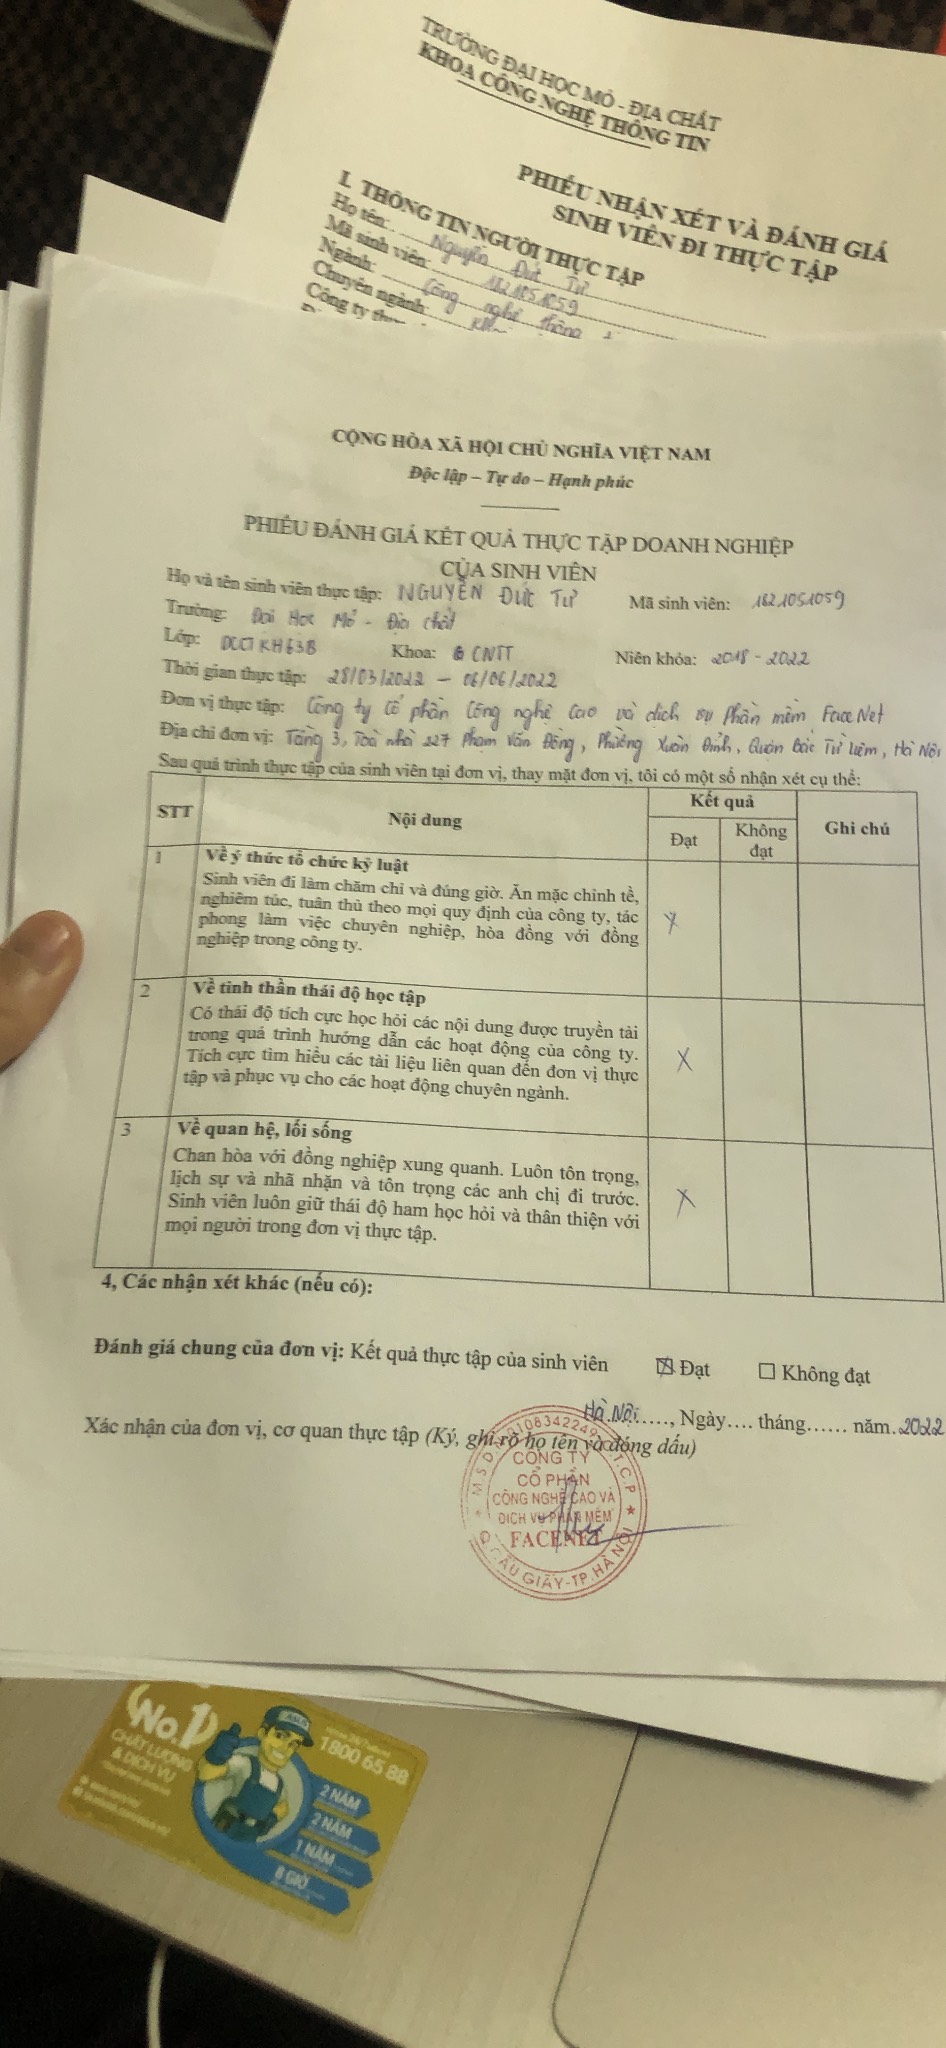 TRƯỜNG ĐẠI HỌC MỎ - ĐỊA CHẤT
KHOA CÔNG NGHỆ THÔNG TIN
PHIẾU NHẬN XÉT VÀ ĐÁNH GIÁ
SINH VIÊN ĐI THỰC TẬP
I. THÔNG TIN NGƯỜI THỰC TẬP
Họ tên: Nguyễn Đức Tư
Mã sinh viên: 1821051059
Ngành: Công nghệ thông
Chuyên ngành:
Công ty
CỘNG HÒA XÃ HỘI CHỦ NGHĨA VIỆT NAM
Độc lập – Tự do – Hạnh phúc
PHIẾU ĐÁNH GIÁ KẾT QUẢ THỰC TẬP DOANH NGHIỆP
CỦA SINH VIÊN
Họ và tên sinh viên thực tập: NGUYỄN ĐỨC TƯ Mã sinh viên: 1821051059
Trường: Đại Học Mỏ - Địa chất
Lớp: DCCTKH63B Khoa: CNTT Niên khóa: 2018 - 2022
Thời gian thực tập: 28/03/2022 – 06/06/2022
Đơn vị thực tập: Công ty Cổ phần Công nghệ Cao và dịch vụ Phần mềm FaceNet
Địa chỉ đơn vị: Tầng 3, Toà nhà 227 Phạm Văn Đồng, Phường Xuân Đỉnh, Quận Bắc Từ Liêm, Hà Nội
Sau quá trình thực tập của sinh viên tại đơn vị, thay mặt đơn vị, tôi có một số nhận xét cụ thể:
STT Nội dung Kết quả Ghi chú
Đạt Không đạt
1 Về ý thức tổ chức kỷ luật
Sinh viên đi làm chăm chỉ và đúng giờ. Ăn mặc chỉnh tề,
nghiêm túc, tuân thủ theo mọi quy định của công ty, tác
phong làm việc chuyên nghiệp, hòa đồng với đồng
nghiệp trong công ty.
X
2 Về tinh thần thái độ học tập
Có thái độ tích cực học hỏi các nội dung được truyền tải
trong quá trình hướng dẫn các hoạt động của công ty.
Tích cực tìm hiểu các tài liệu liên quan đến đơn vị thực
tập và phục vụ cho các hoạt động chuyên ngành.
X
3 Về quan hệ, lối sống
Chan hòa với đồng nghiệp xung quanh. Luôn tôn trọng,
lịch sự và nhã nhặn và tôn trọng các anh chị đi trước.
Sinh viên luôn giữ thái độ ham học hỏi và thân thiện với
mọi người trong đơn vị thực tập.
X
4, Các nhận xét khác (nếu có):
Đánh giá chung của đơn vị: Kết quả thực tập của sinh viên ☒ Đạt ☐ Không đạt
Hà Nội......, Ngày.... tháng...... năm.2022
Xác nhận của đơn vị, cơ quan thực tập (Ký, ghi rõ họ tên và đóng dấu)
CÔNG TY
CỔ PHẦN
CÔNG NGHỆ CAO VÀ
DỊCH VỤ PHẦN MỀM
FACENET
Q.CẦU GIẤY-TP.HÀ NỘI
No.1
CHẤT LƯỢNG
& DỊCH VỤ
ASUS
1800 65 88
2 NĂM
2 NĂM
1 NĂM
8 GIỜ